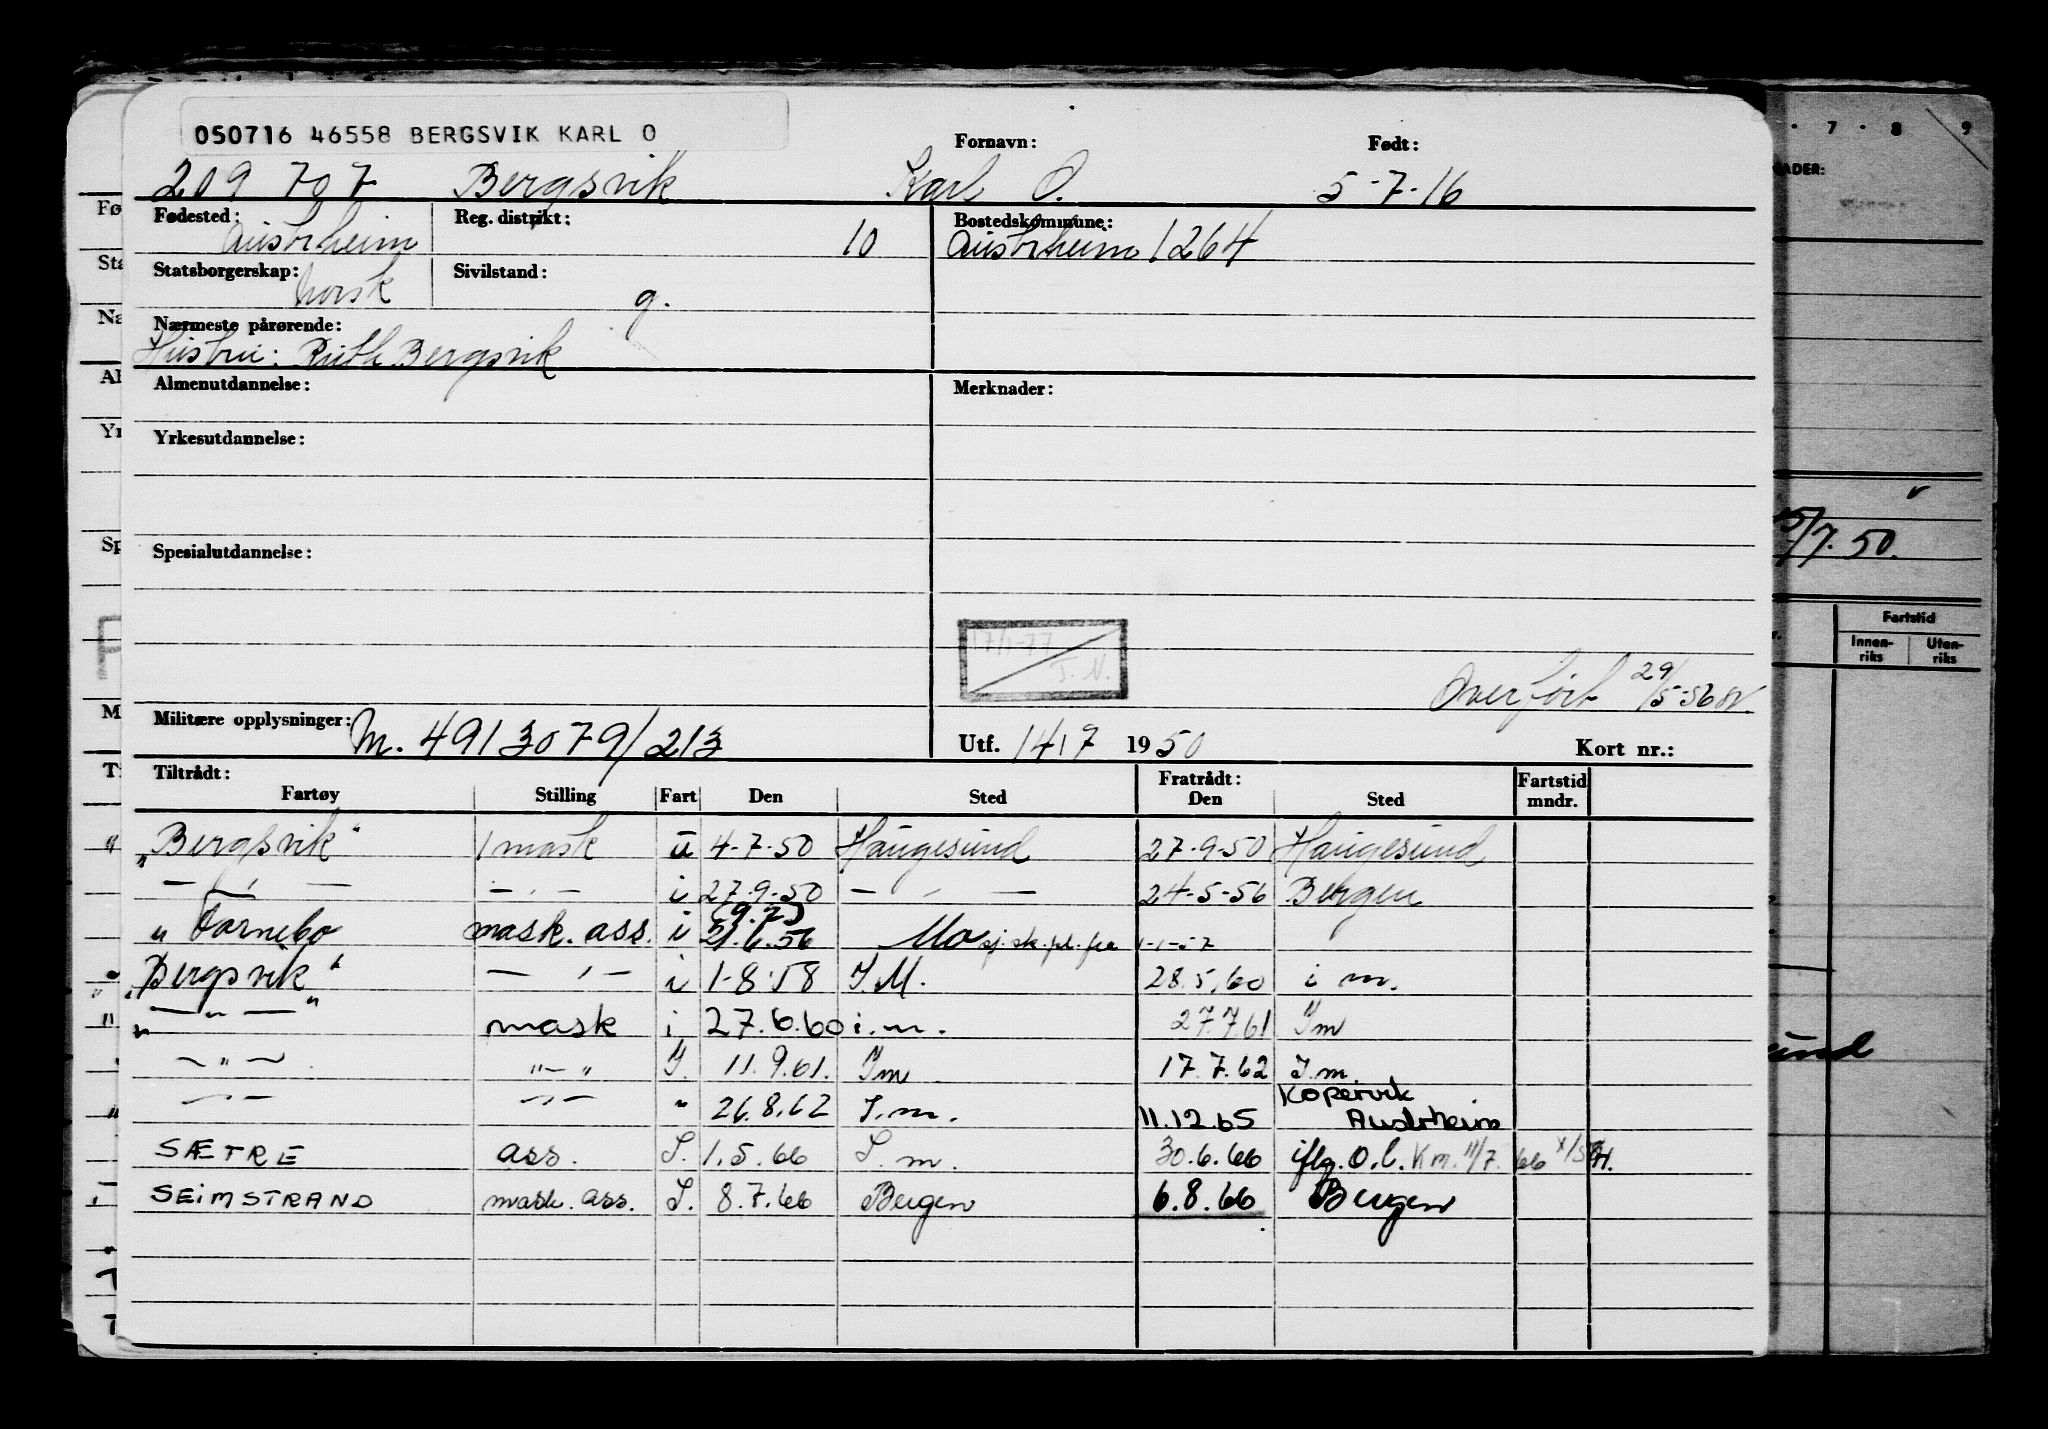 050716 46558 BERGSVIK KARL O
Fornavn: Født:
209 707 Bergsvik Karl O. 5-7-16
Fødested: Austrheim Reg. distrikt: 10 Bostedskommune: Austrheim 1264
Statsborgerskap: norsk Sivilstand: g.
Nærmeste pårørende:
Hustru: Ruth Bergsvik
Almenutdannelse: Merknader:
Yrkesutdannelse:
Spesialutdannelse:
17/1-77
T. N.
Overført 29/5-56
Militære opplysninger: M. 4913079/213 Utf. 14/7 1950 Kort nr.:
Tiltrådt: Fratrådt: Fartstid
Fartøy Stilling Fart Den Sted Den Sted mndr.
„Bergsvik“ 1 mask u 4-7-50 Haugesund 27-9-50 Haugesund
— „ — — „ — i 27.9.50 — „ — 24-5-56 Bergen
„Fornebo mask. ass. i 21.6.56 Mo sj. sk. pl. fra 1-1-57
„Bergsvik“ — „ — i 1-8-58 I.M. 28.5.60 i m.
„— „ —“ mask i 27.6.60 i.m. 27.7.61 Im
— „ — „ — „ I. 11.9.61. Im 17.7.62 I.m.
— „ — — „ — „ 26.8.62 I.m. 11.12.65 Kopervik
Austrheim
SÆTRE ass. I. 1.5.66 I.m. 30.6.66 iflg. O.b. Km. 11/7. 66
SEIMSTRAND mask. ass. I. 8.7.66 Bergen 6.8.66 Bergen
7 8 9
5/7.50.
Fartstid
Innen-
riks
Uten-
riks